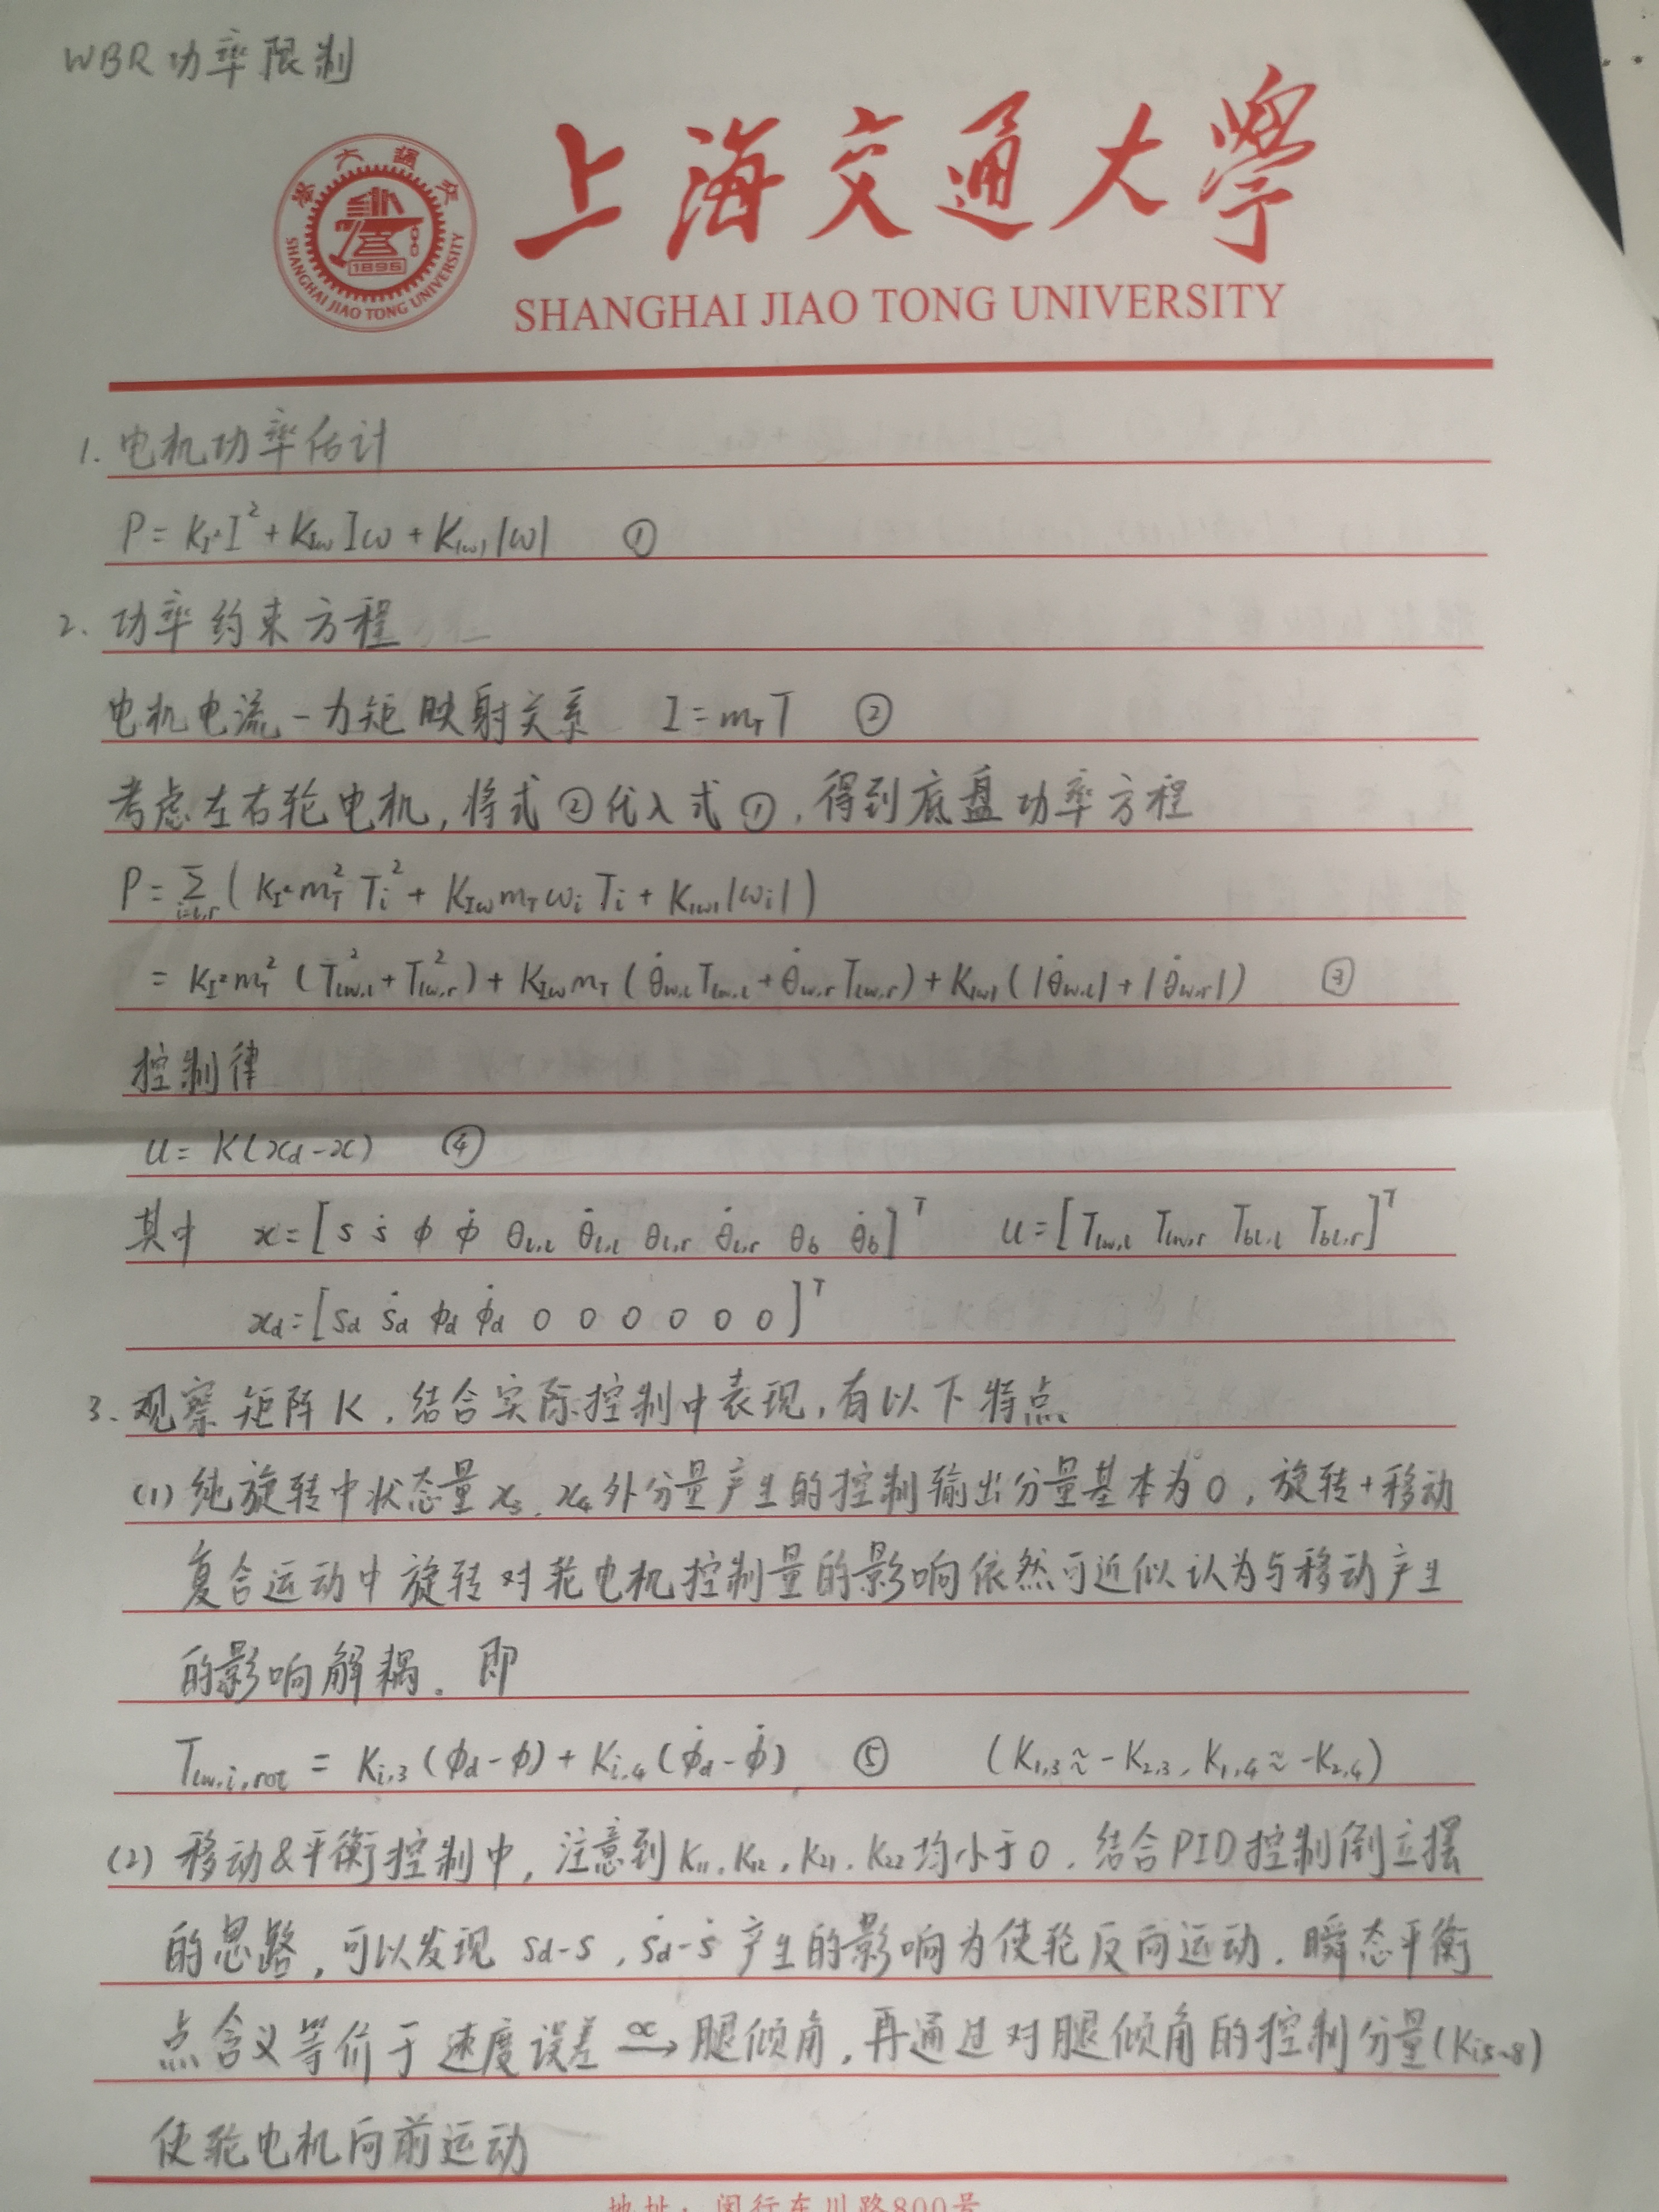 WBR功率限制
上海交通大学
SHANGHAI JIAO TONG UNIVERSITY
1896
SHANGHAI JIAO TONG UNIVERSITY
1. 电机功率估计
P = K_{I²}I² + K_{Iω}Iω + K_{|ω|}|ω| ①
2. 功率约束方程
电机电流-力矩映射关系 I = m_T T ②
考虑左右轮电机,将式②代入式①,得到底盘功率方程
P = Σ_{i=l,r} ( K_{I²} m_T² T_i² + K_{Iω} m_T ω_i T_i + K_{|ω|} |ω_i| )
= K_{I²} m_T² ( T_{lw,l}² + T_{lw,r}² ) + K_{Iω} m_T ( θ̇_{w,l} T_{lw,l} + θ̇_{w,r} T_{lw,r} ) + K_{|ω|} ( |θ̇_{w,l}| + |θ̇_{w,r}| ) ③
控制律
u = K(x_d - x) ④
其中 x = [s ṡ ϕ ϕ̇ θ_{l,l} θ̇_{l,l} θ_{l,r} θ̇_{l,r} θ_b θ̇_b]^T u = [T_{lw,l} T_{lw,r} T_{bl,l} T_{bl,r}]^T
x_d = [s_d ṡ_d ϕ_d ϕ̇_d 0 0 0 0 0 0]^T
3. 观察矩阵K,结合实际控制中表现,有以下特点
(1) 纯旋转中状态量x_3、x_4外分量产生的控制输出分量基本为0,旋转+移动
复合运动中旋转对轮电机控制量的影响依然可近似认为与移动产生
的影响解耦。即
T_{lw,i,rot} = K_{i,3}(ϕ_d - ϕ) + K_{i,4}(ϕ̇_d - ϕ̇) ⑤ (K_{1,3} ≈ -K_{2,3}, K_{1,4} ≈ -K_{2,4})
(2) 移动&平衡控制中,注意到K_{11}, K_{12}, K_{21}, K_{22}均小于0,结合PID控制倒立摆
的思路,可以发现 s_d-s, ṡ_d-ṡ 产生的影响为使轮反向运动.瞬态平衡
点含义等价于速度误差 ∝→ 腿倾角,再通过对腿倾角的控制分量(K_{i5~8})
使轮电机向前运动
地址:闵行东川路800号